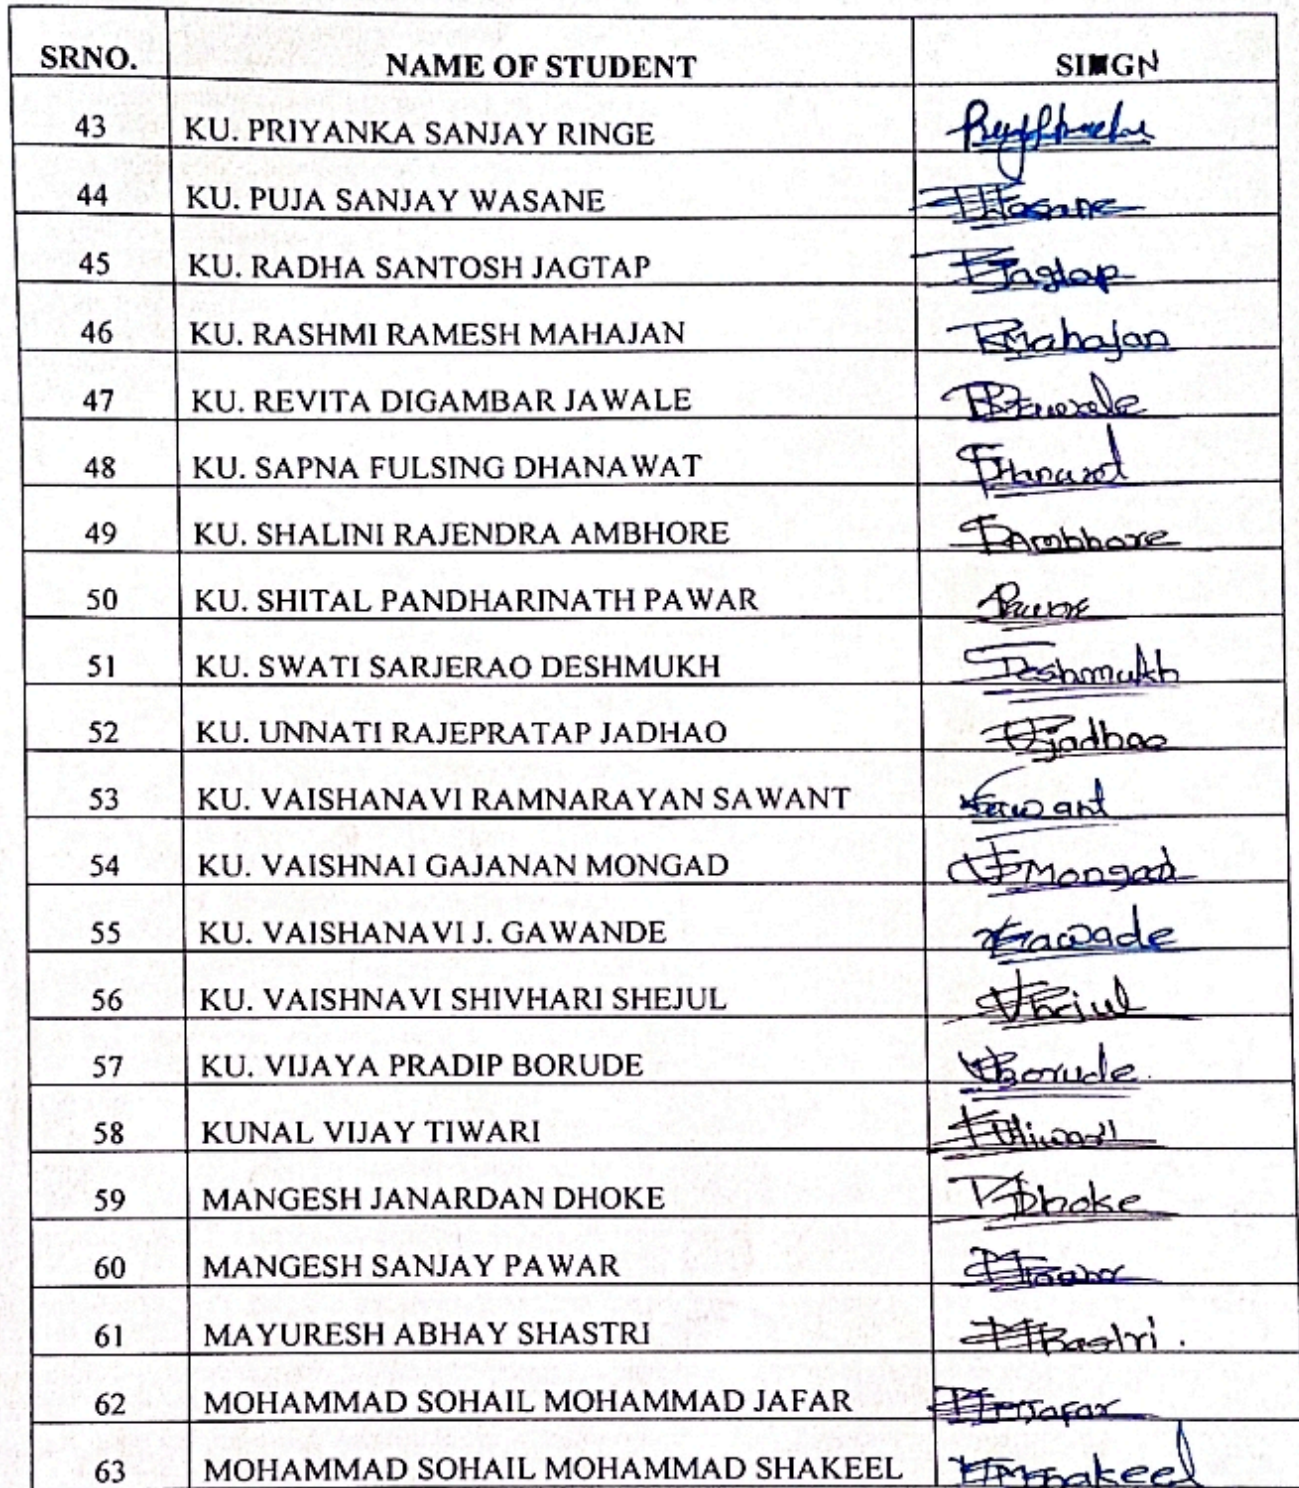 SRNO. NAME OF STUDENT SIGN
43 KU. PRIYANKA SANJAY RINGE
44 KU. PUJA SANJAY WASANE Wasane
45 KU. RADHA SANTOSH JAGTAP Jagtap
46 KU. RASHMI RAMESH MAHAJAN RMahajan
47 KU. REVITA DIGAMBAR JAWALE
48 KU. SAPNA FULSING DHANAWAT
49 KU. SHALINI RAJENDRA AMBHORE SAmbhore
50 KU. SHITAL PANDHARINATH PAWAR
51 KU. SWATI SARJERAO DESHMUKH Deshmukh
52 KU. UNNATI RAJEPRATAP JADHAO Jadhao
53 KU. VAISHANAVI RAMNARAYAN SAWANT Sawant
54 KU. VAISHNAI GAJANAN MONGAD Mongad
55 KU. VAISHANAVI J. GAWANDE Gawade
56 KU. VAISHNAVI SHIVHARI SHEJUL
57 KU. VIJAYA PRADIP BORUDE Borude
58 KUNAL VIJAY TIWARI Tiwari
59 MANGESH JANARDAN DHOKE Dhoke
60 MANGESH SANJAY PAWAR
61 MAYURESH ABHAY SHASTRI
62 MOHAMMAD SOHAIL MOHAMMAD JAFAR Jafar
63 MOHAMMAD SOHAIL MOHAMMAD SHAKEEL